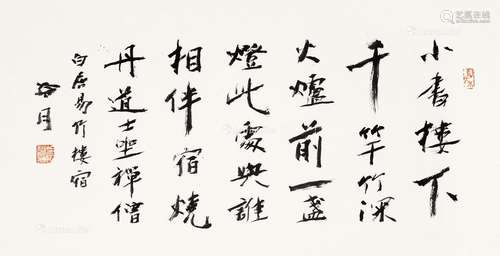 小書樓下
千竿竹深
火爐前一盞
燈此處與誰
相伴宿燒
丹道士坐禪僧
白居易竹樓宿
艺狐在线